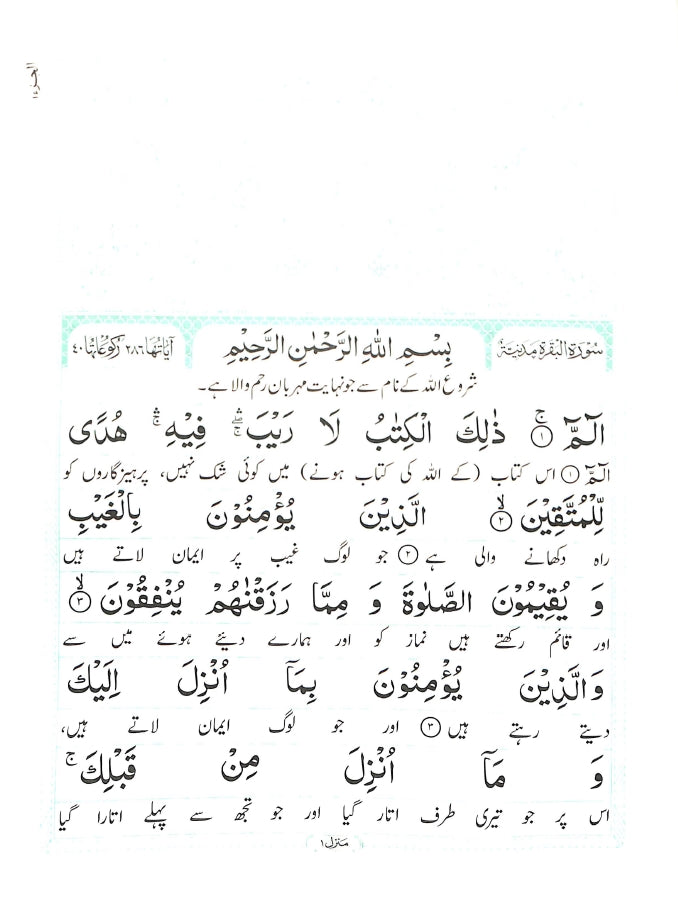 الجزء ١
سُوْرَةُ الْبَقَرَةِ مَدَنِيَّةٌ
بِسْمِ اللهِ الرَّحْمٰنِ الرَّحِيْمِ
اٰيَاتُهَا ٢٨٦ رُكُوْعَاتُهَا ٤٠
شروع اللہ کے نام سے جو نہایت مہربان رحم والا ہے۔
الٓمّٓ ۚ﴿۱﴾ ذٰلِكَ الْكِتٰبُ لَا رَيْبَ ۛۖ فِيْهِ ۛۚ هُدًى
الٓمّٓ ﴿۱﴾ اس کتاب (کے اللہ کی کتاب ہونے) میں کوئی شک نہیں، پرہیزگاروں کو
لِّلْمُتَّقِيْنَ ۙ﴿۲﴾ الَّذِيْنَ يُؤْمِنُوْنَ بِالْغَيْبِ
راہ دکھانے والی ہے ﴿۲﴾ جو لوگ غیب پر ایمان لاتے ہیں
وَ يُقِيْمُوْنَ الصَّلٰوةَ وَ مِمَّا رَزَقْنٰهُمْ يُنْفِقُوْنَ ۙ﴿۳﴾
اور قائم رکھتے ہیں نماز کو اور ہمارے دیئے ہوئے میں سے
وَالَّذِيْنَ يُؤْمِنُوْنَ بِمَآ اُنْزِلَ اِلَيْكَ
دیتے رہتے ہیں ﴿۳﴾ اور جو لوگ ایمان لاتے ہیں،
وَ مَآ اُنْزِلَ مِنْ قَبْلِكَ ۚ
اس پر جو تیری طرف اتار گیا اور جو تجھ سے پہلے اتارا گیا
منزل ۱